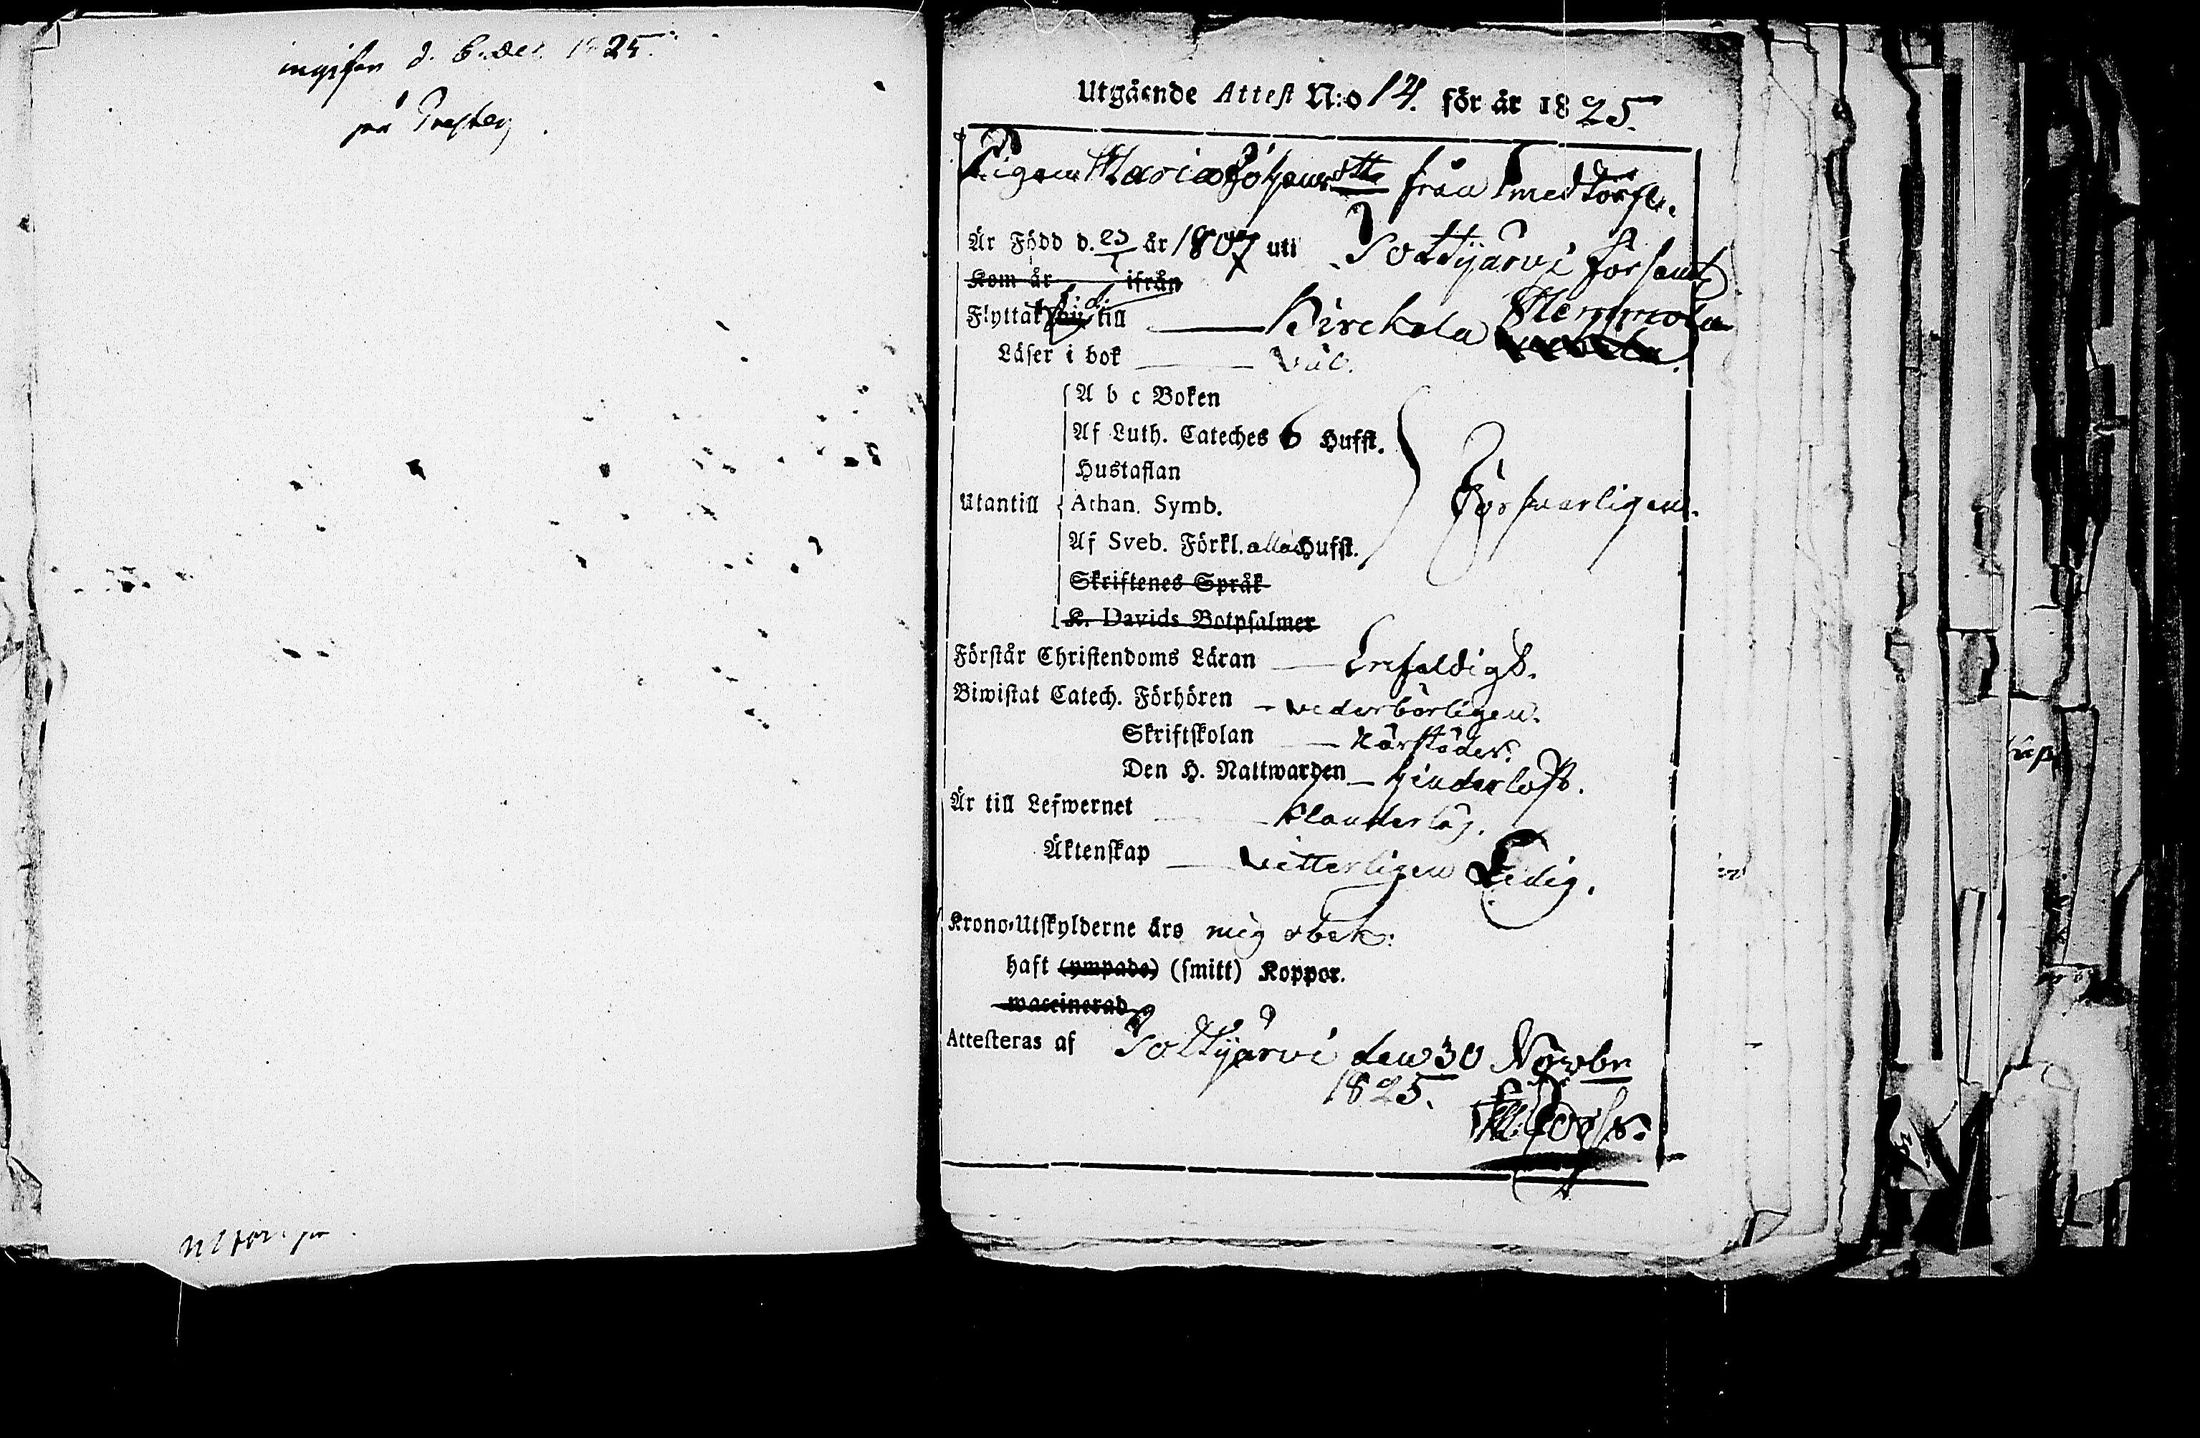 ingifen d. 6. Dec. 1825.
på Prestberg
Utgående Attest N:o 14. för år 1825.
Pigan Maria Johansdtte från Smedtorp.
Är Född d. 23/1 år 1807 uti Tottijärvi församl
Kom år ifrån
Flyttat till Birckala Hemmola
Läser i bok väl.
A b c Boken
Af Luth. Cateches 6 Hufst.
Hustaflan
Utantill Athan. Symb. Försvarligen.
Af Sveb. Förkl. alla Hufst.
Skriftenes Språk
K. Davids Botpsalmer
Förstår Christendoms Läran Enfaldigt.
Biwistat Catech. Förhören vederbörligen.
Skriftskolan
Den H. Nattwarden hinderlöst.
Är till Lefwernet klanderlös.
Äktenskap vitterligen Ledig.
Krono-Utskylderne äro mig obek:
haft (ympade) (smitt) Koppor.
waccinerad
Attesteras af Tottijärvi den 30 Novbr
1825.